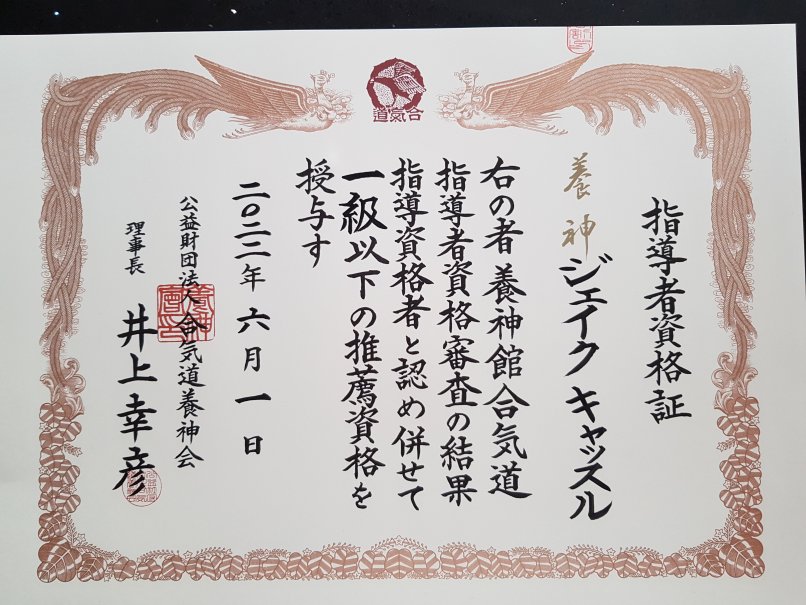 合氣道
指導者資格証
養神
ジェイク キャッスル
右の者 養神館合気道
指導者資格審査の結果
指導資格者と認め併せて
一級以下の推薦資格を
授与す
二〇二二年 六月 一日
公益財団法人合気道養神会
理事長 井上幸彦